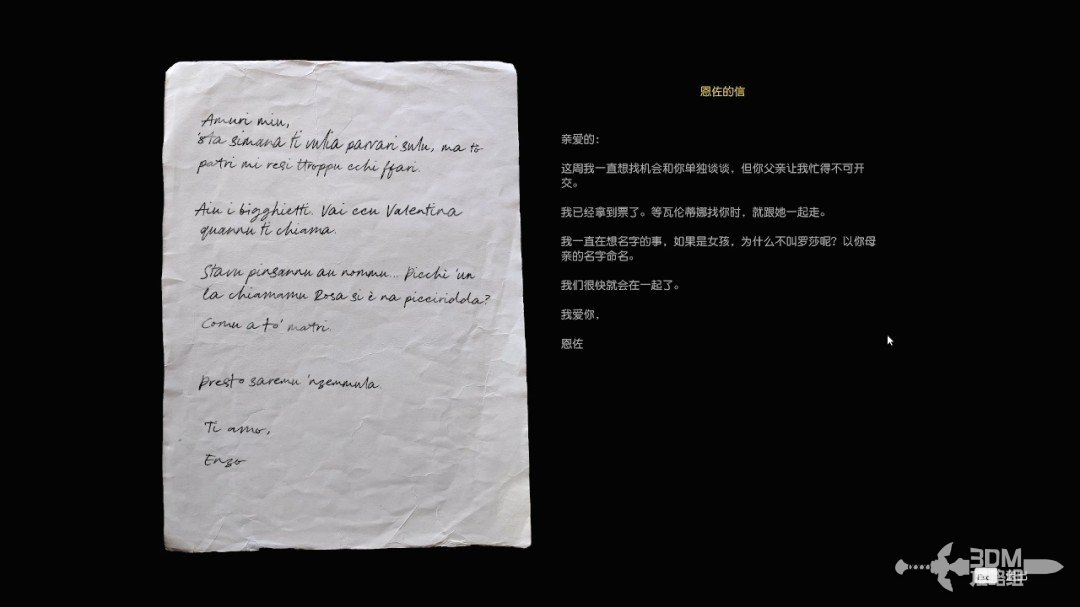 Amuri miu,
'sta simana ti vulia parrari sulu, ma to
patri mi resi ttroppu cchi ffari.
Aiu i bigghietti. Vai ccu Valentina
quannu ti chiama.
Stavu pinsannu au nommu... Picchì 'un
la chiamamu Rosa si è na picciridda?
Comu a to' matri.
Presto saremu 'nzemmula.
Ti amo,
Enzo
恩佐的信
亲爱的：
这周我一直想找机会和你单独谈谈，但你父亲让我忙得不可开
交。
我已经拿到票了。等瓦伦蒂娜找你时，就跟她一起走。
我一直在想名字的事，如果是女孩，为什么不叫罗莎呢？以你母
亲的名字命名。
我们很快就会在一起了。
我爱你，
恩佐
3DM
Esc